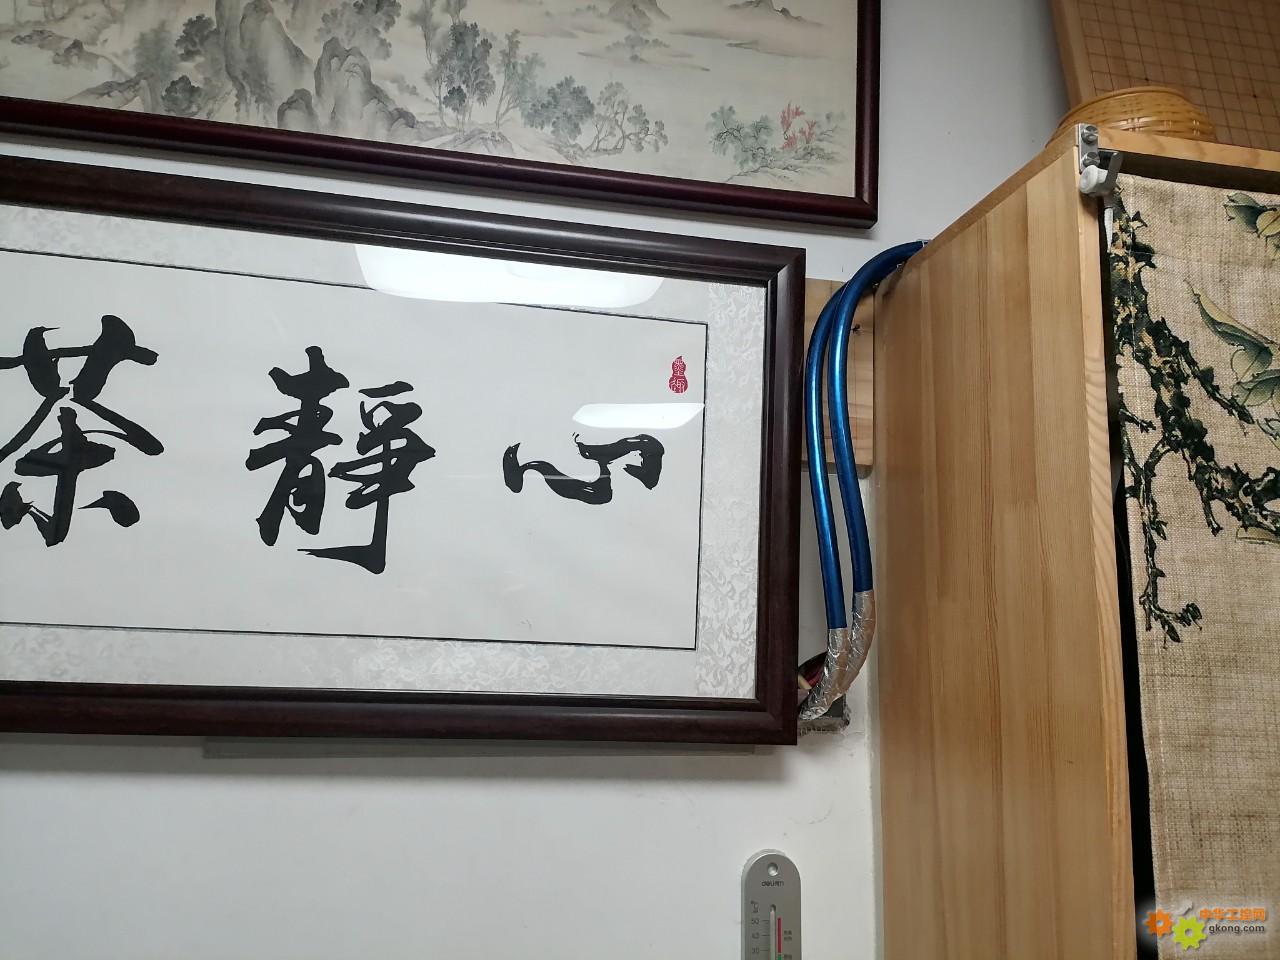 心靜茶
deli
°C
50
40
30
中华工控网
gkong.com